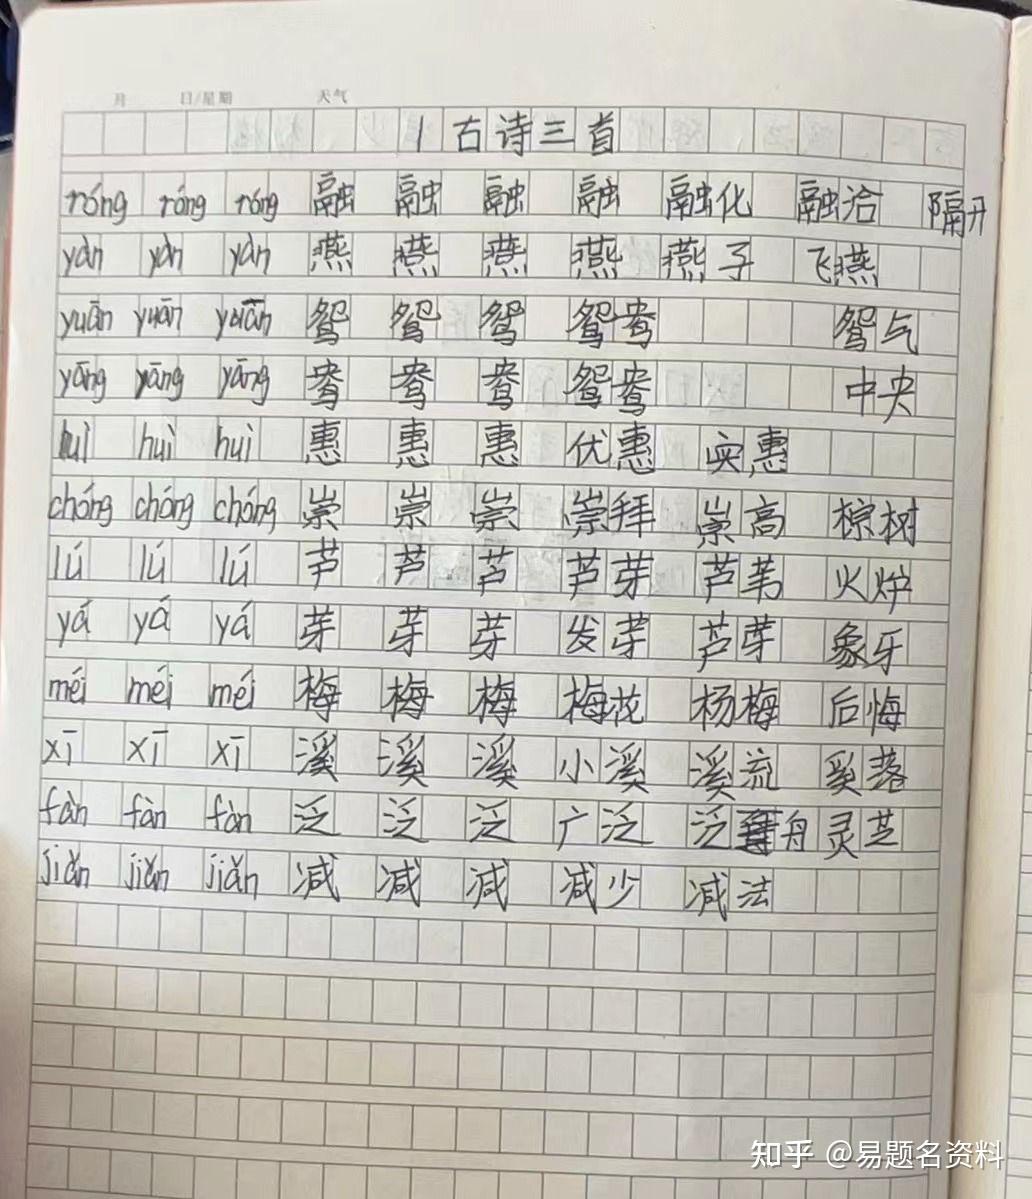 月 日/星期 天气
1 古诗三首
róng róng róng 融 融 融 融 融化 融洽 隔开
yàn yàn yàn 燕 燕 燕 燕 燕子 飞燕
yuān yuān yuān 鸳 鸳 鸳 鸳鸯 鸳气
yāng yāng yāng 鸯 鸯 鸯 鸳鸯 中央
huì huì huì 惠 惠 惠 优惠 实惠
chóng chóng chóng 崇 崇 崇 崇拜 崇高 棕树
lú lú lú 芦 芦 芦 芦芽 芦苇 火炉
yá yá yá 芽 芽 芽 发芽 芦芽 象牙
méi méi méi 梅 梅 梅 梅花 杨梅 后悔
xī xī xī 溪 溪 溪 小溪 溪流 奚落
fàn fàn fàn 泛 泛 泛 广泛 泛舟 灵芝
jiǎn jiǎn jiǎn 减 减 减 减少 减法
知乎 @易题名资料